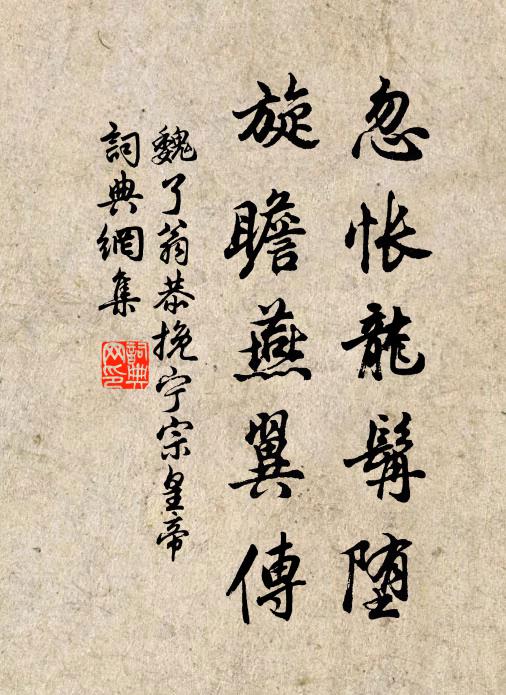 忽怅龍髯堕
旋瞻燕翼傳
魏了翁恭挽宁宗皇帝
詞典網集
詞典网印